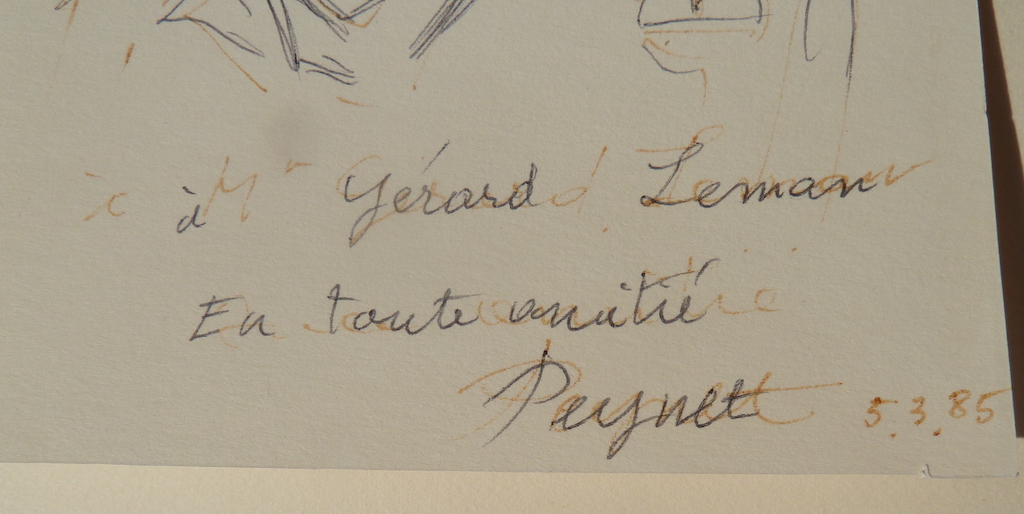 à Mr Gérard Leman
En toute amitié
Peynet 5.3.85